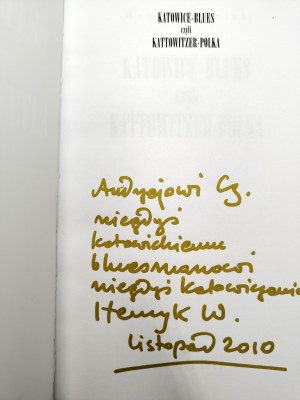 KATOWICE-BLUES
czyli
KATTOWITZER-POLKA
Andrzejowi Cz.
niegdyś
katowickiemu
bluesmanowi
niegdyś Katowiczanin
Henryk W.
listopad 2010